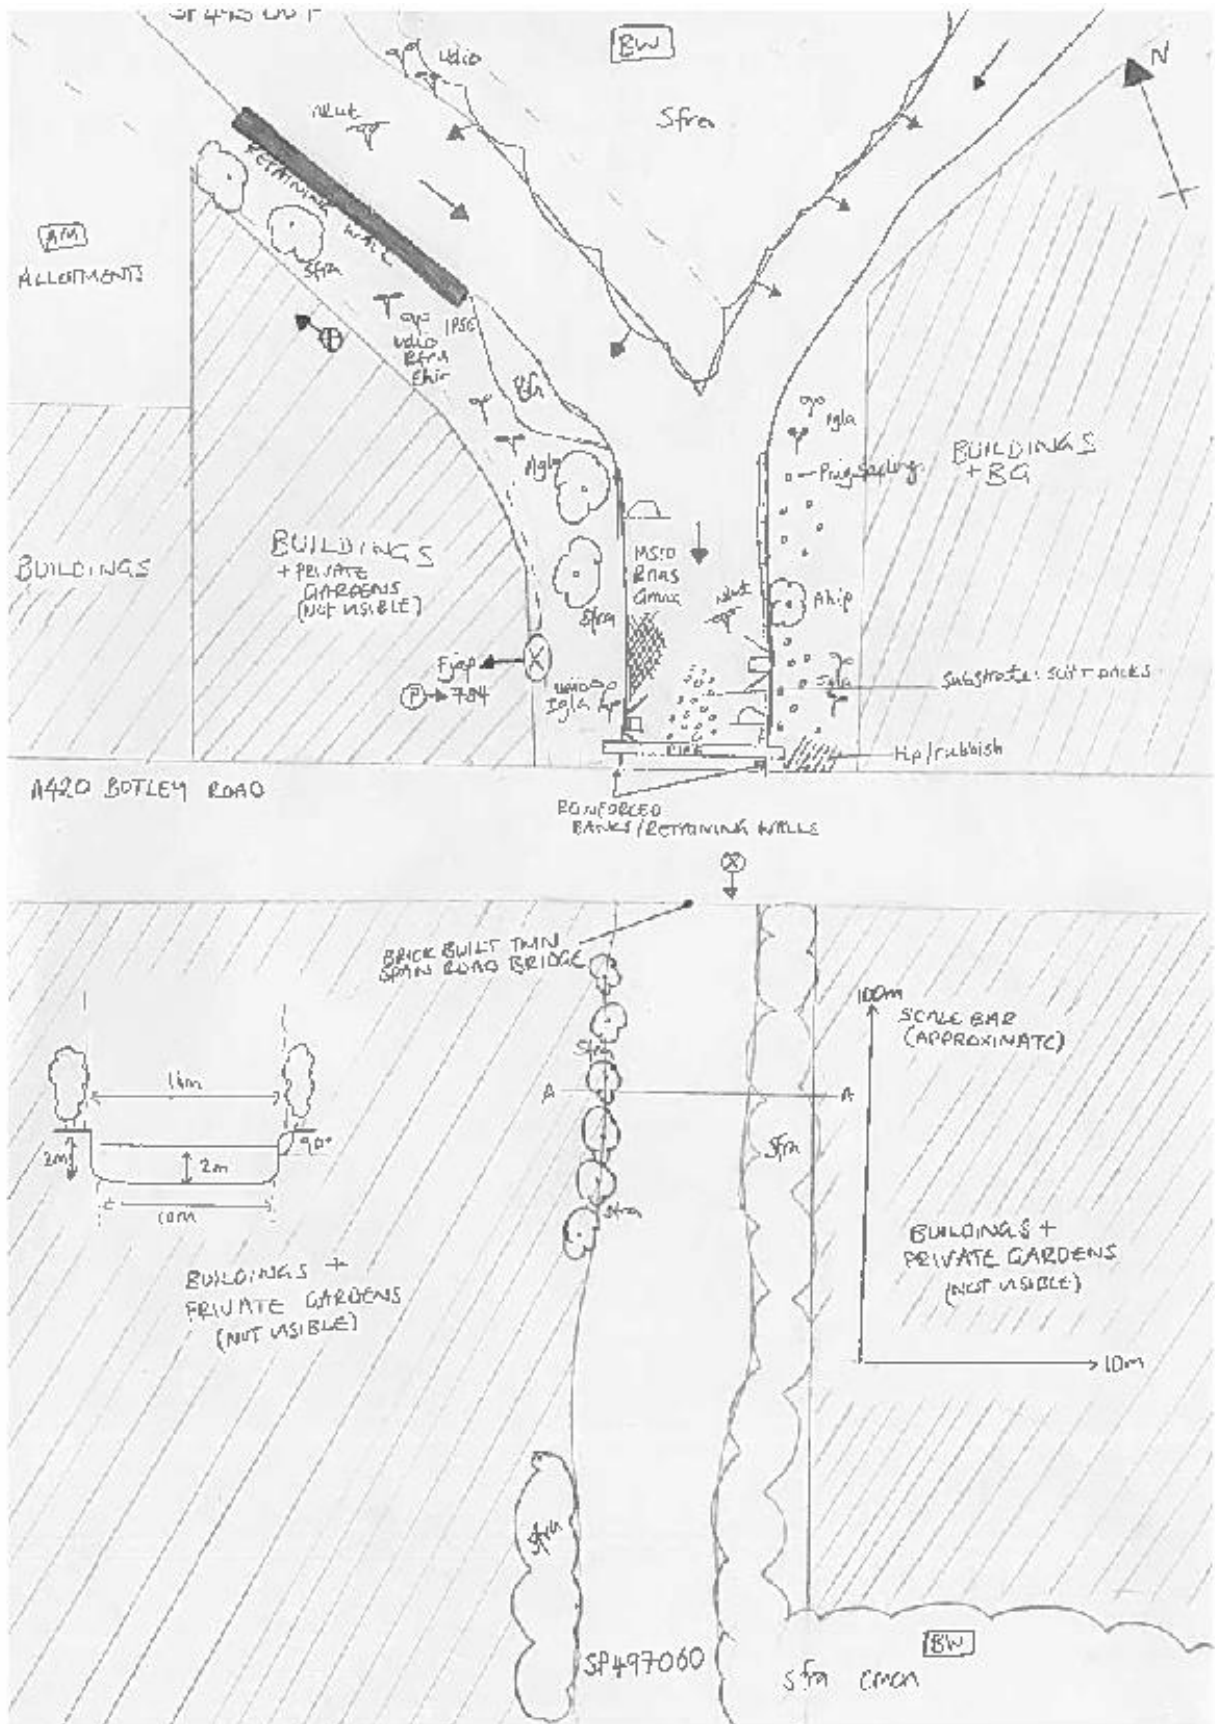 BW
N
Udio
Nlut
Sfra
RETAINING WALL
AM
ALLOTMENTS
Sfra
IPSE
Udio
Rfra
Ehir
BG
Igla
Psig-Sapling
BUILDINGS
+ BG
BUILDINGS
BUILDINGS
+ PRIVATE
GARDENS
(NOT VISIBLE)
Nlut
Ahip
Sfra
Fjap
X
P → 784
Udio
Igla
Tip/rubbish
A420 BOTLEY ROAD
REINFORCED
BANKS/RETAINING WALLS
X
BRICK BUILT TWIN
SPAN ROAD BRIDGE
100m
SCALE BAR
(APPROXIMATE)
Sfra
14m
A
A
90°
2m
2m
Sfra
10m
Sfra
BUILDINGS +
PRIVATE GARDENS
(NOT VISIBLE)
BUILDINGS +
PRIVATE GARDENS
(NOT VISIBLE)
10m
Sfra
BW
SP497060
Sfra